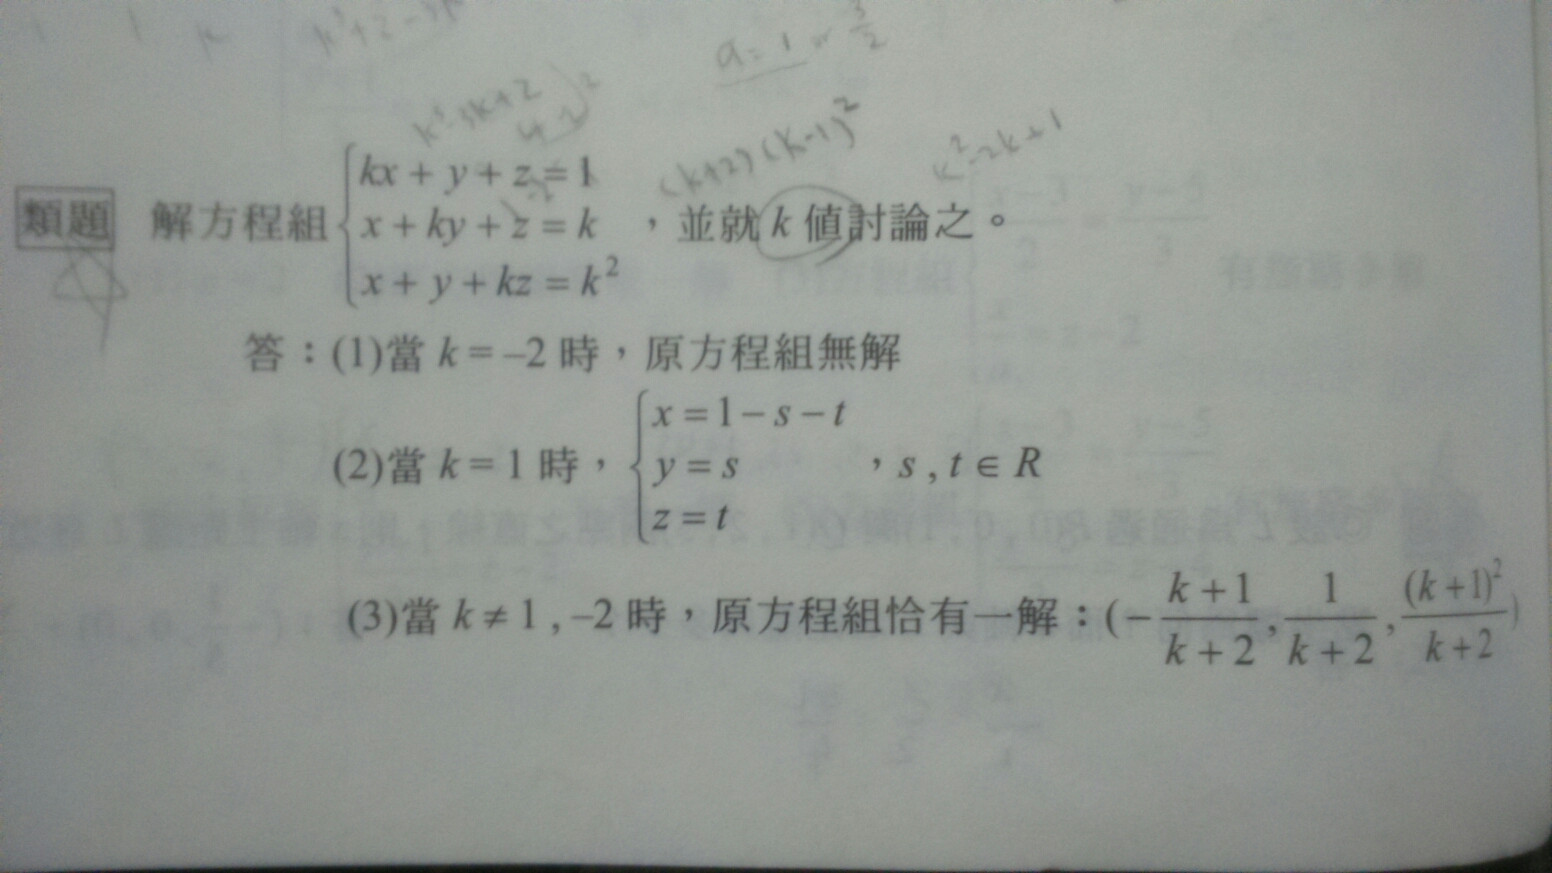 a = 1 or 3/2
k³-3k+2
(k+2)(k-1)²
k²-2k+1
類題 解方程組 { kx + y + z = 1
x + ky + z = k ，並就 k 值討論之。
x + y + kz = k²
答：(1)當 k = –2 時，原方程組無解
(2)當 k = 1 時， { x = 1 – s – t
y = s ，s , t ∈ R
z = t
(3)當 k ≠ 1 , –2 時，原方程組恰有一解：(– (k+1)/(k+2) , 1/(k+2) , (k+1)²/(k+2))